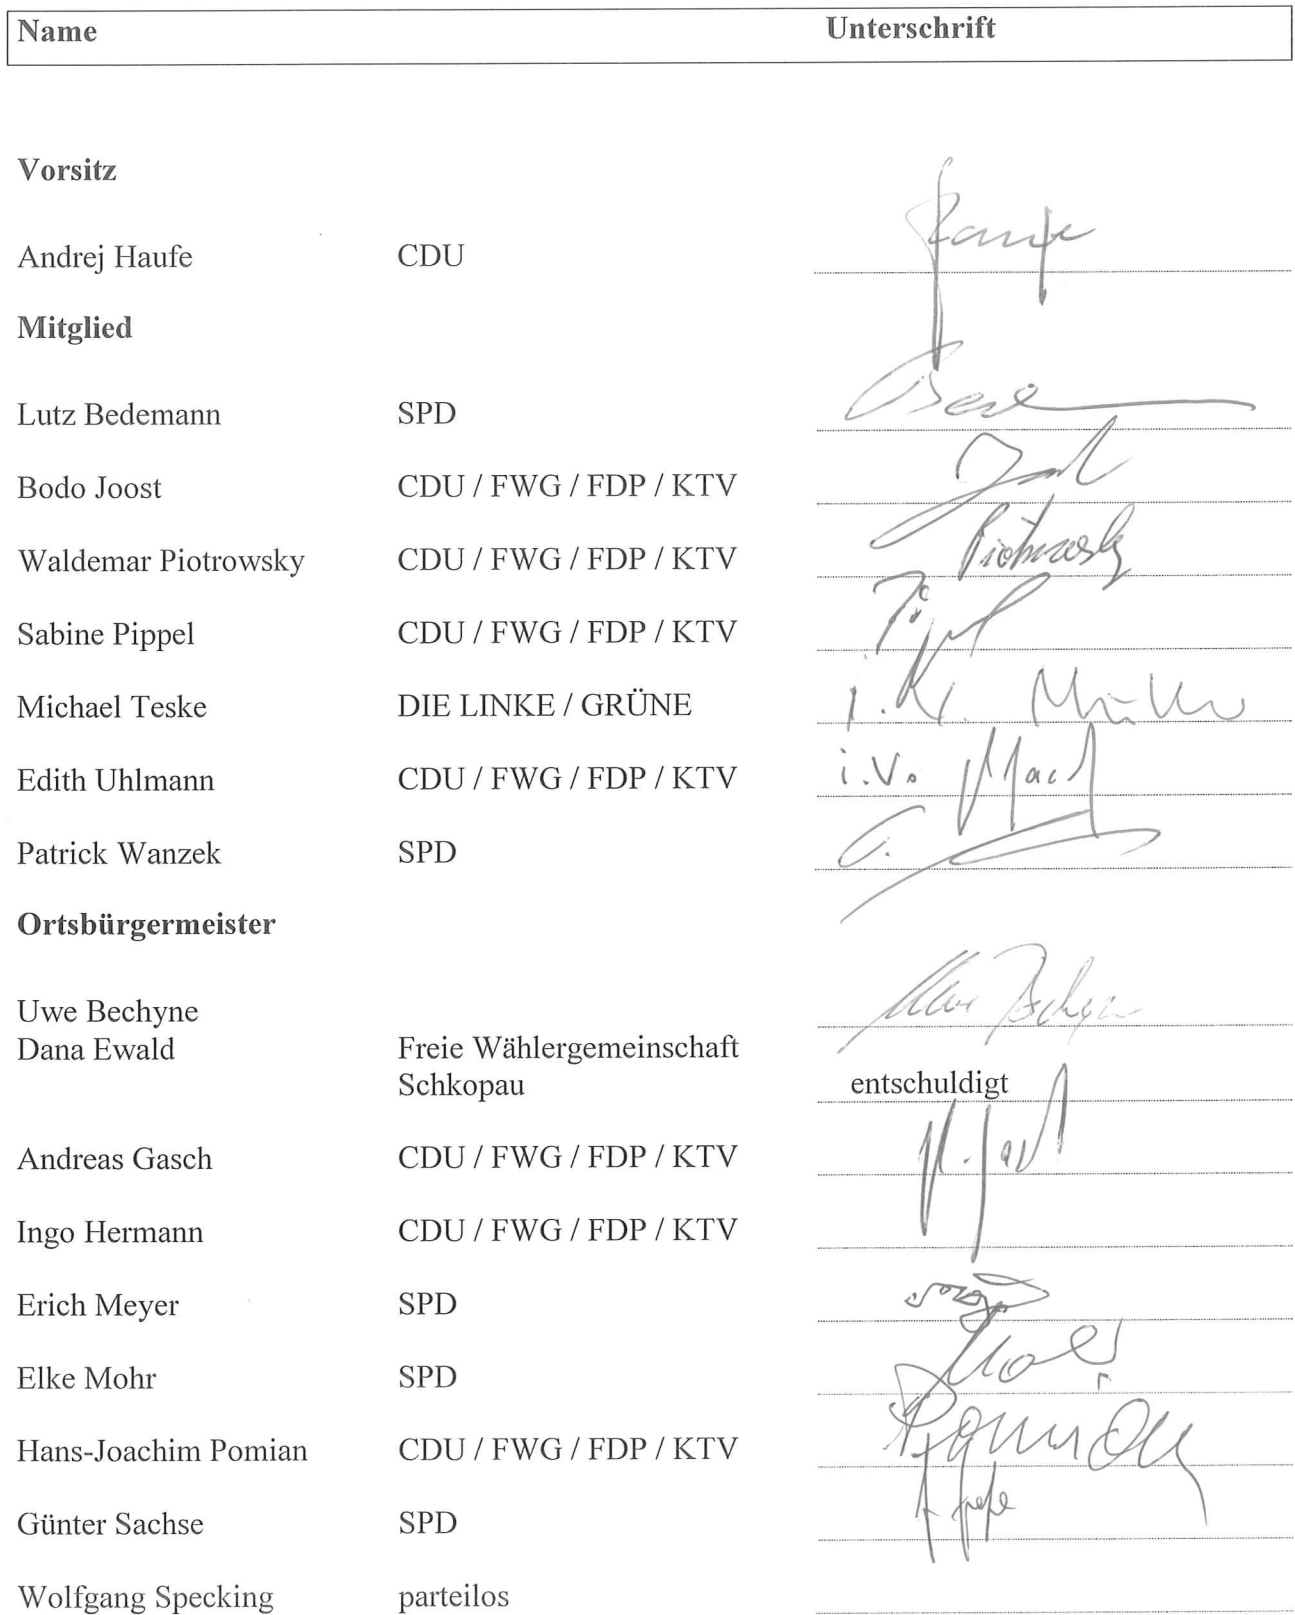 Name Unterschrift
Vorsitz
Andrej Haufe CDU
Mitglied
Lutz Bedemann SPD
Bodo Joost CDU / FWG / FDP / KTV
Waldemar Piotrowsky CDU / FWG / FDP / KTV Piotrowsky
Sabine Pippel CDU / FWG / FDP / KTV
Michael Teske DIE LINKE / GRÜNE i.V. Müller
Edith Uhlmann CDU / FWG / FDP / KTV i.V.
Patrick Wanzek SPD
Ortsbürgermeister
Uwe Bechyne Uwe Bechyne
Dana Ewald Freie Wählergemeinschaft
Schkopau entschuldigt
Andreas Gasch CDU / FWG / FDP / KTV
Ingo Hermann CDU / FWG / FDP / KTV
Erich Meyer SPD
Elke Mohr SPD
Hans-Joachim Pomian CDU / FWG / FDP / KTV Pomian
Günter Sachse SPD
Wolfgang Specking parteilos